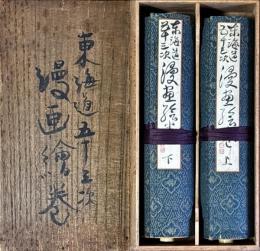 東海道五十三次
漫画繪巻
東海道
五十三次
漫画繪巻
上
東海道
五十三次
漫画繪
下